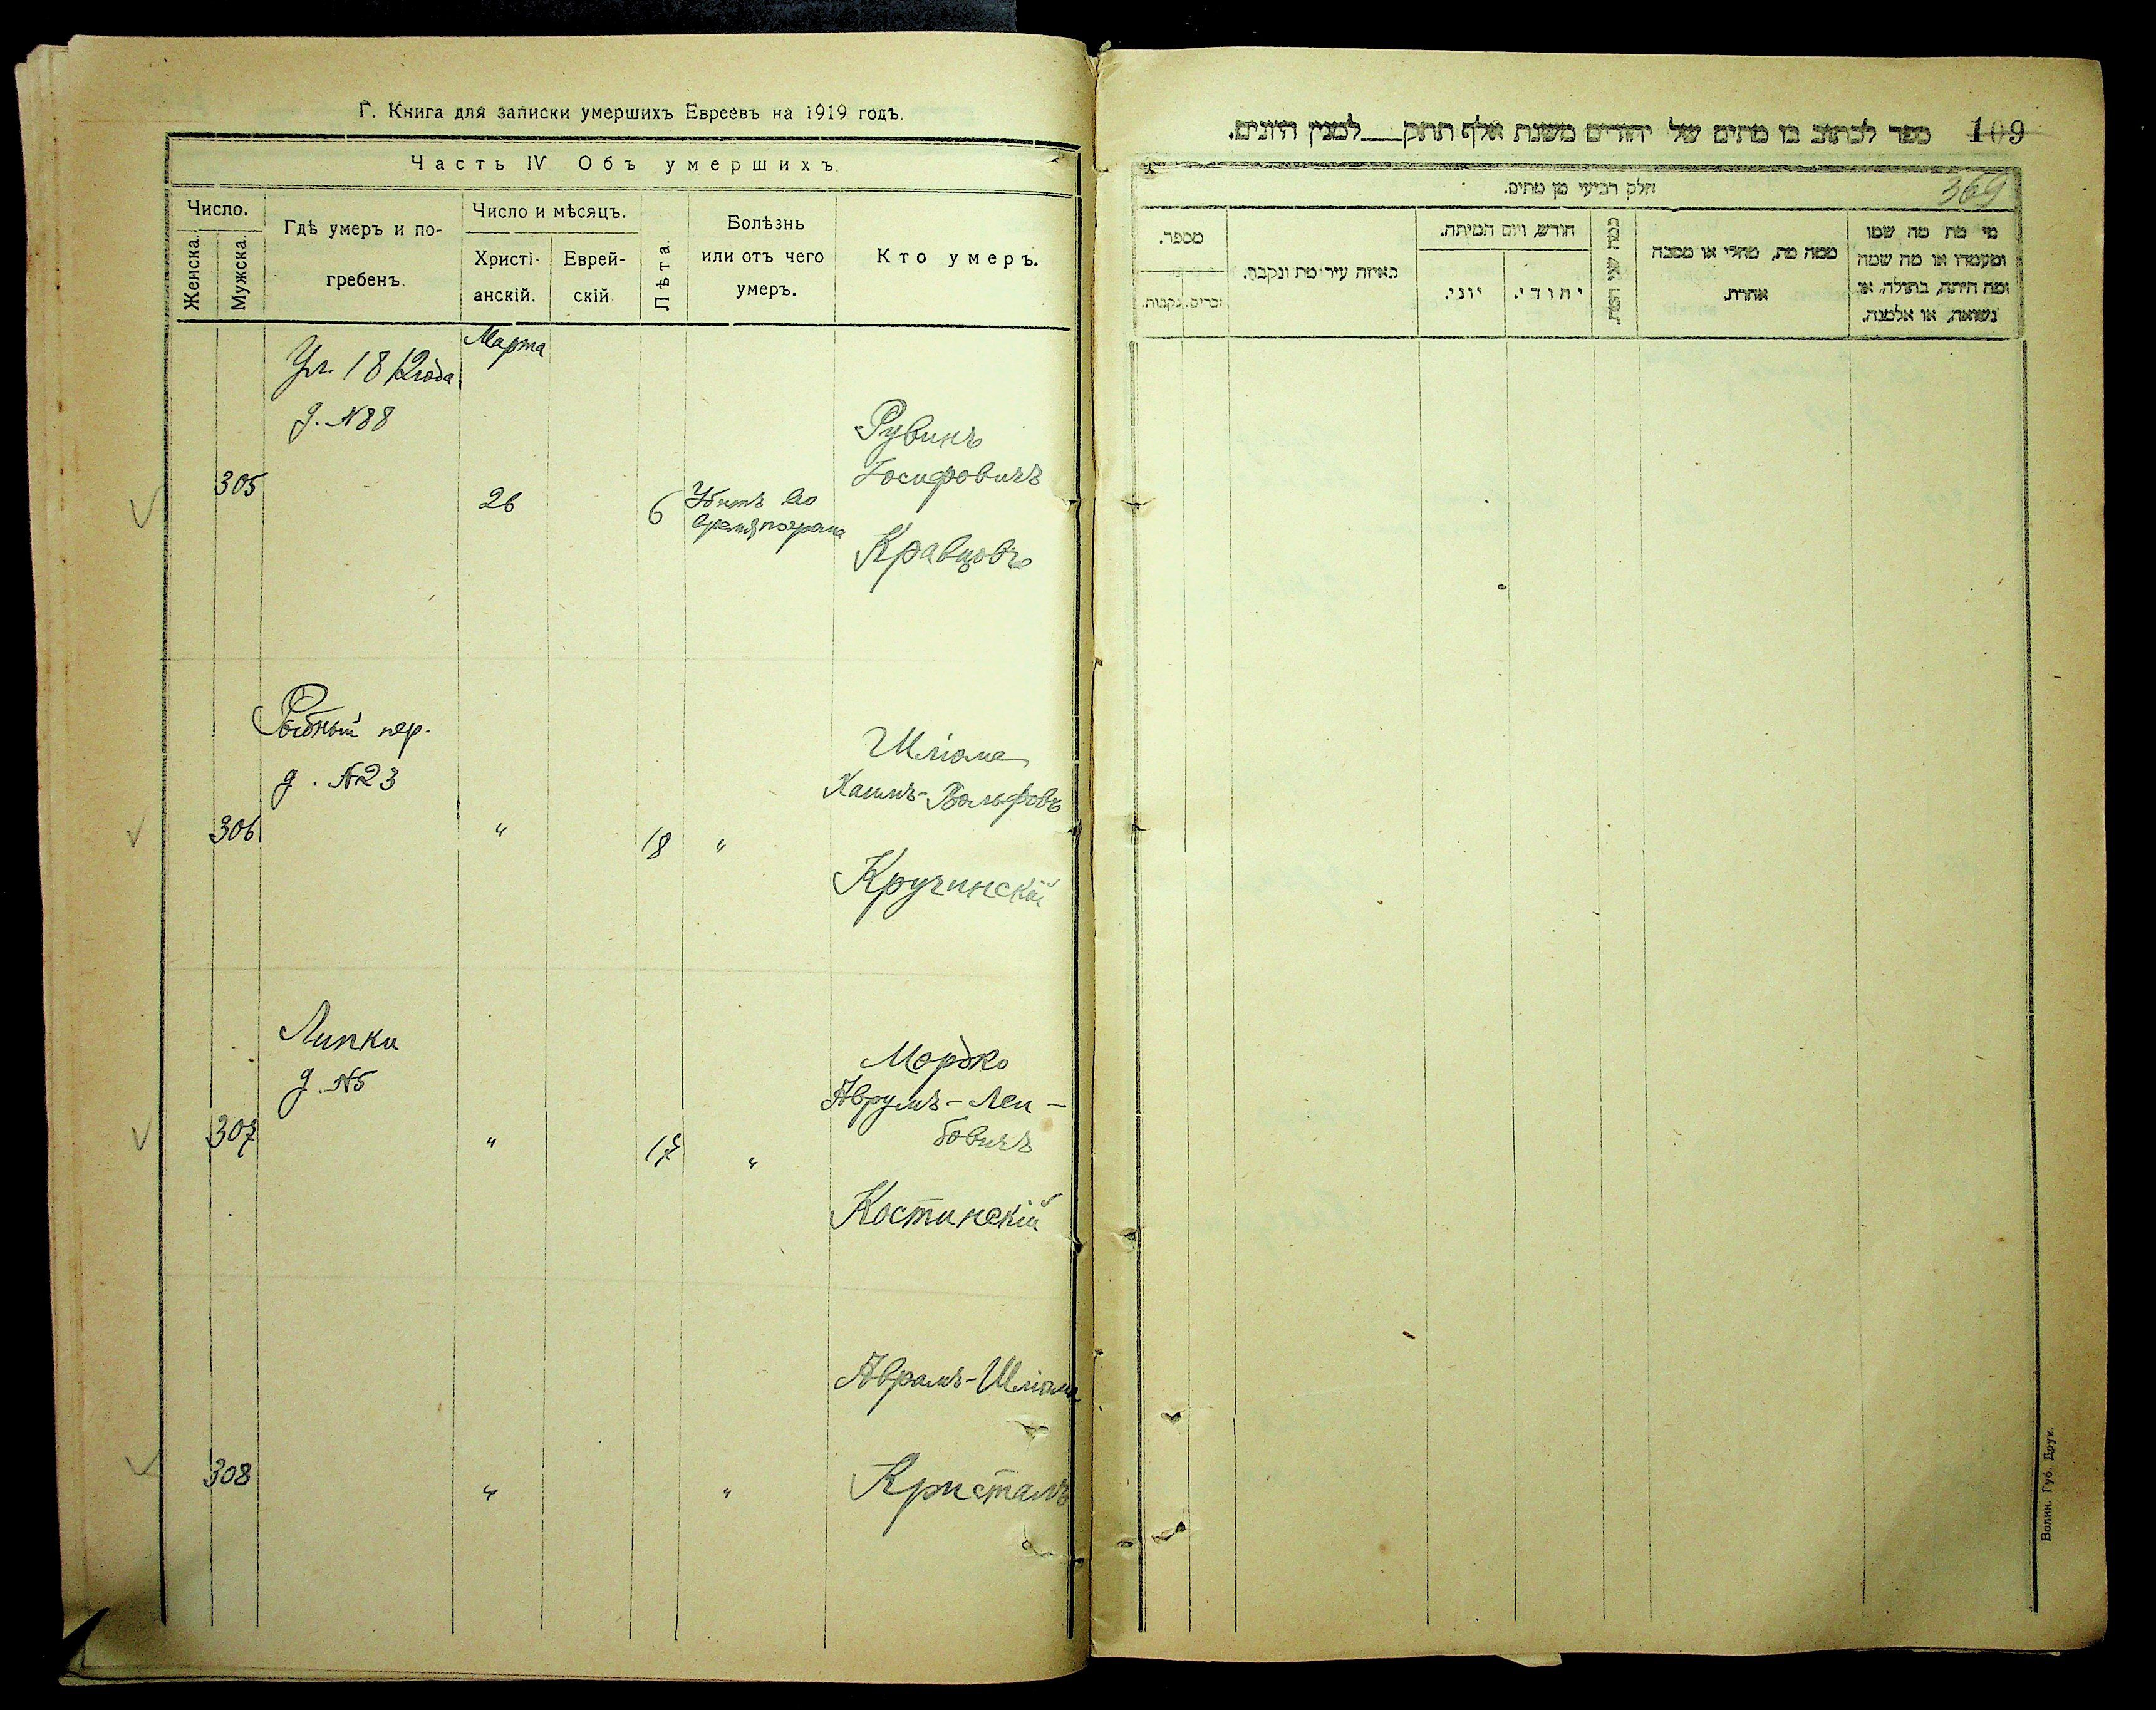 Г. Книга для записки умершихъ Евреевъ на 1919 годъ.
Часть IV Объ умершихъ.
Число.
Женска.
Мужска.
Гдѣ умеръ и по-
гребенъ.
Число и мѣсяцъ.
Христі-
анскій.
Еврей-
скій
Лѣта.
Болѣзнь
или отъ чего
умеръ.
Кто умеръ.
Марта
Ул. 1812 года
д. №88
305
26
6
Убитъ во
время погрома
Рувинъ
Іосифовичъ
Кравцовъ
Рыбный пер.
д. №23
306
"
18
"
Шліома
Хаимъ-Вольфовъ
Кручинскій
Липки
д. №5
307
"
17
"
Мордко
Аврумъ-Лей-
бовичъ
Костинскій
308
"
"
Аврамъ-Шліома
Кристалъ
ספר לכתוב בו מתים של יהודים משנת אלף תתק___למנין היונים.
109
369
חלק רביעי מן מתים.
מספר.
זכרים.
נקבות.
באיזה עיר מת ונקבר.
חודש, ויום המיתה.
יוני.
יהודי.
כמה שני המת.
ממה מת, מחלי או מסבה
אחרת.
מי מת מה שמו
ומעמדו או מה שמה
ומה היתה, בתולה, או
נשואה, או אלמנה.
Волин. Губ. Друк.